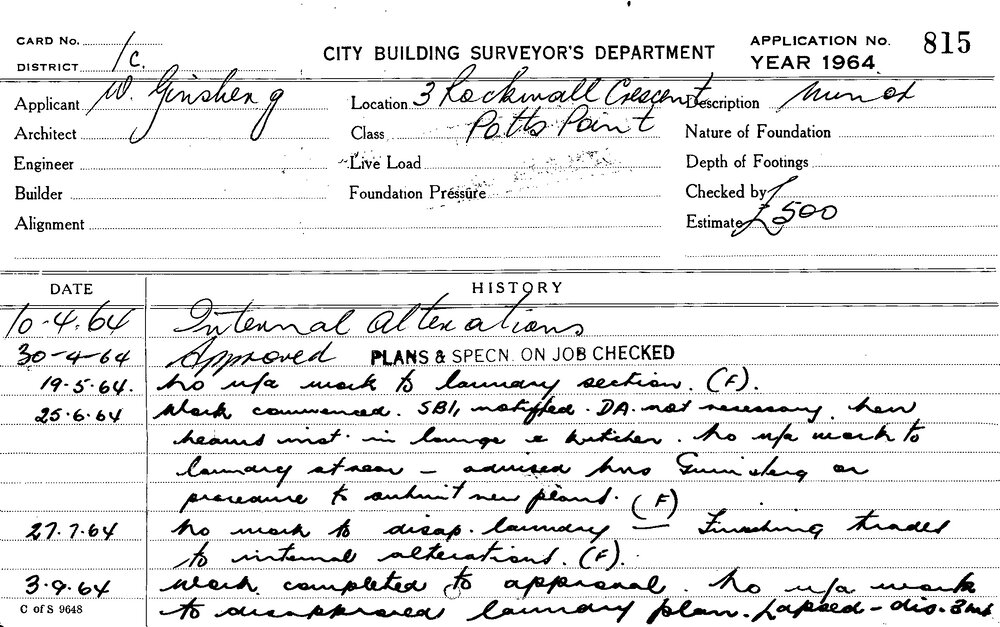 CARD No.
DISTRICT 1c.
CITY BUILDING SURVEYOR'S DEPARTMENT
APPLICATION No. 815
YEAR 1964
Applicant W. Ginsberg
Location 3 Rockwall Crescent
Description Minor
Architect
Class Potts Point
Nature of Foundation
Engineer
Live Load
Depth of Footings
Builder
Foundation Pressure
Checked by
Alignment
Estimate £500
DATE HISTORY
10-4.64 Internal Alterations
30-4-64 Approved PLANS & SPECN. ON JOB CHECKED
19.5.64. No u/a work to laundry section. (F).
25.6.64 Work commenced. SBI, notified. DA. not necessary. New
beams inst. in lounge & kitchen. No u/a work to
laundry at rear – advised Mrs Ginsberg on
procedure to submit new plans. (F)
27.7.64 No work to disap. laundry — Finishing trades
to internal alterations. (F).
3.9.64 Work completed to approval. No u/a work
C of S 9648 to disapproved laundry plan. Lapsed – dis.